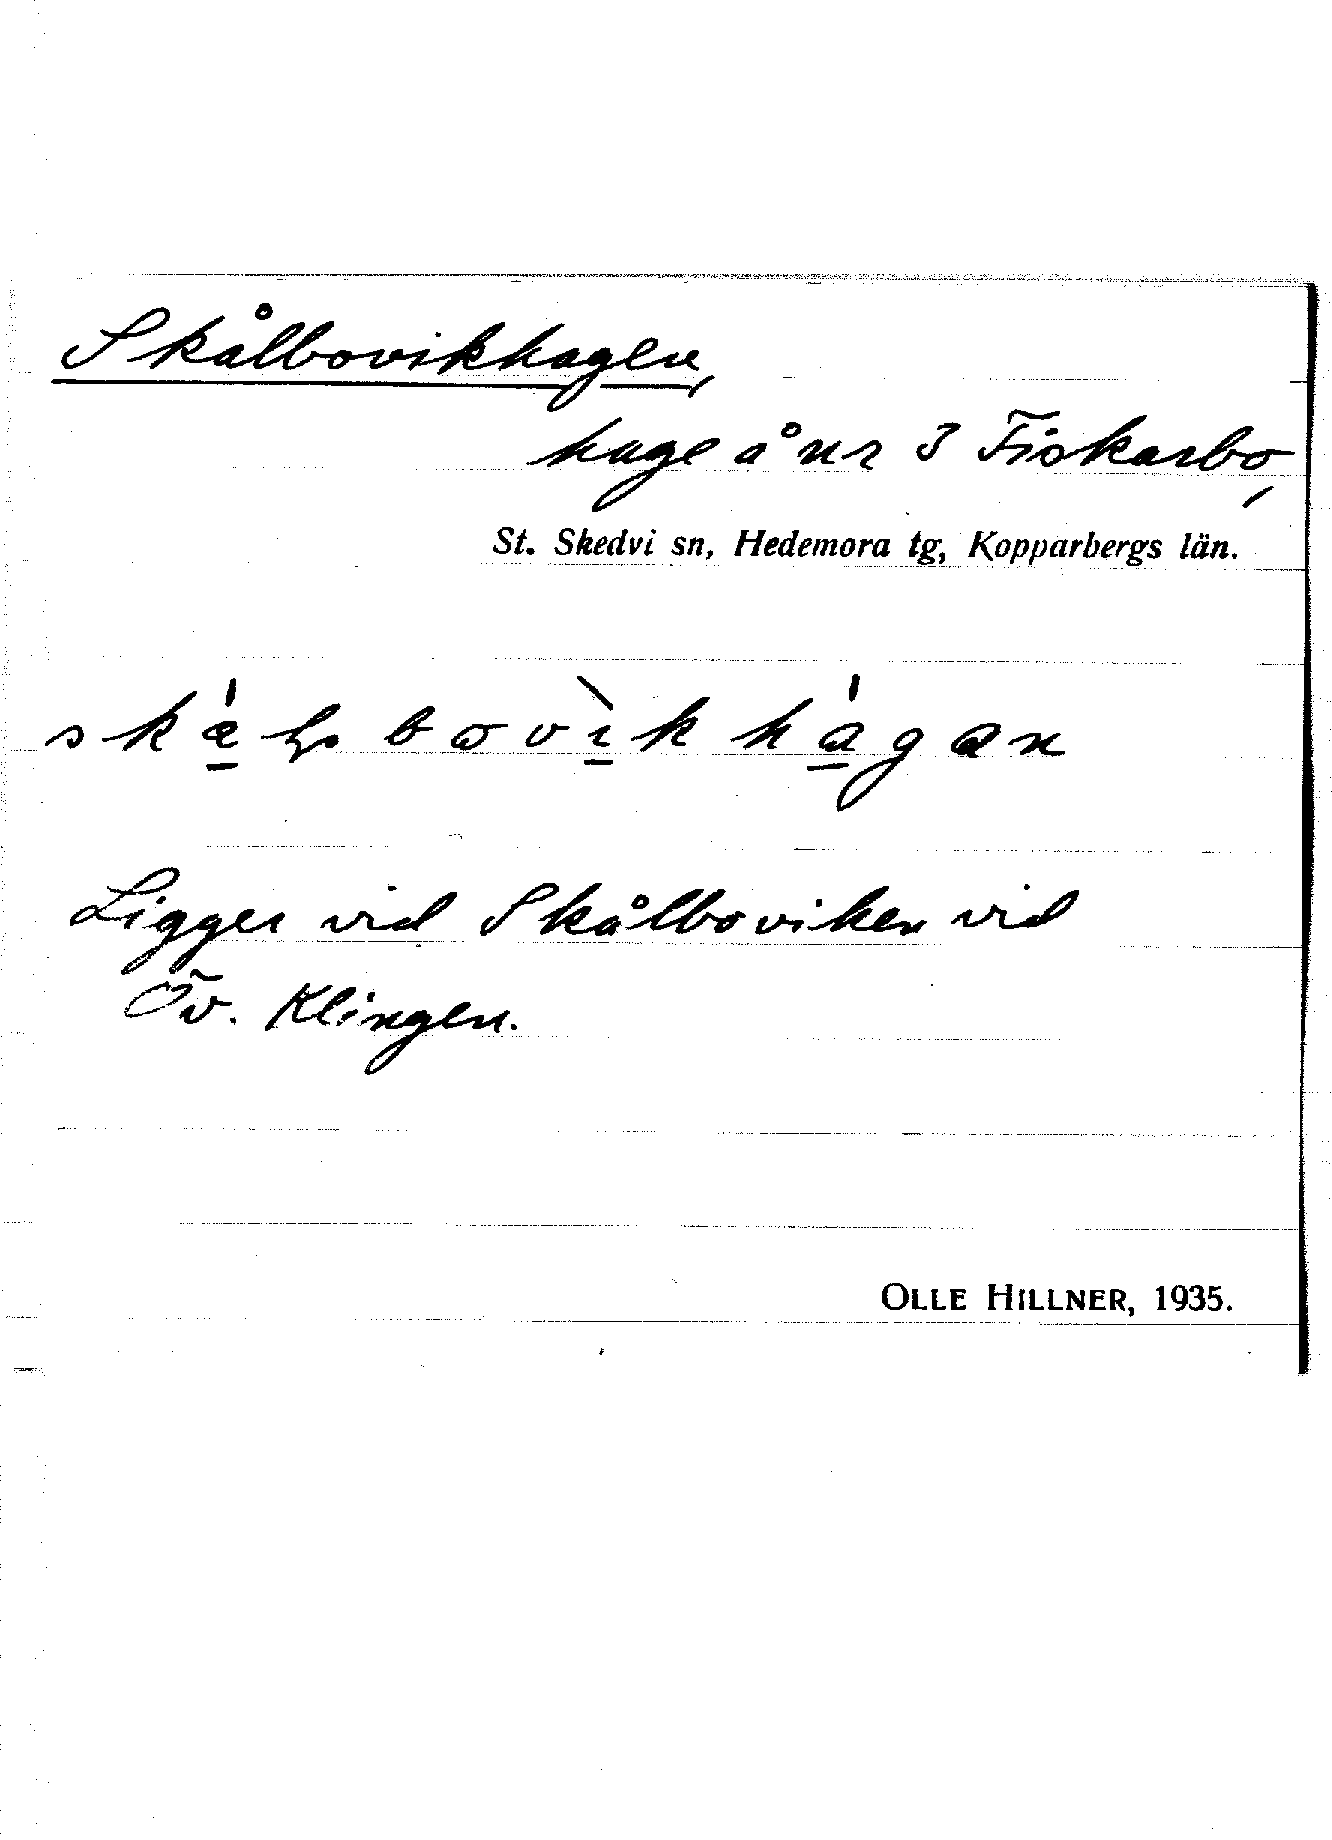 Skålbovikhagen,
hage å nr 3 Fiskarbo,
St. Skedvi sn, Hedemora tg, Kopparbergs län.
Ligger vid Skålboviken vid
Öv. Klingen.
OLLE HILLNER, 1935.